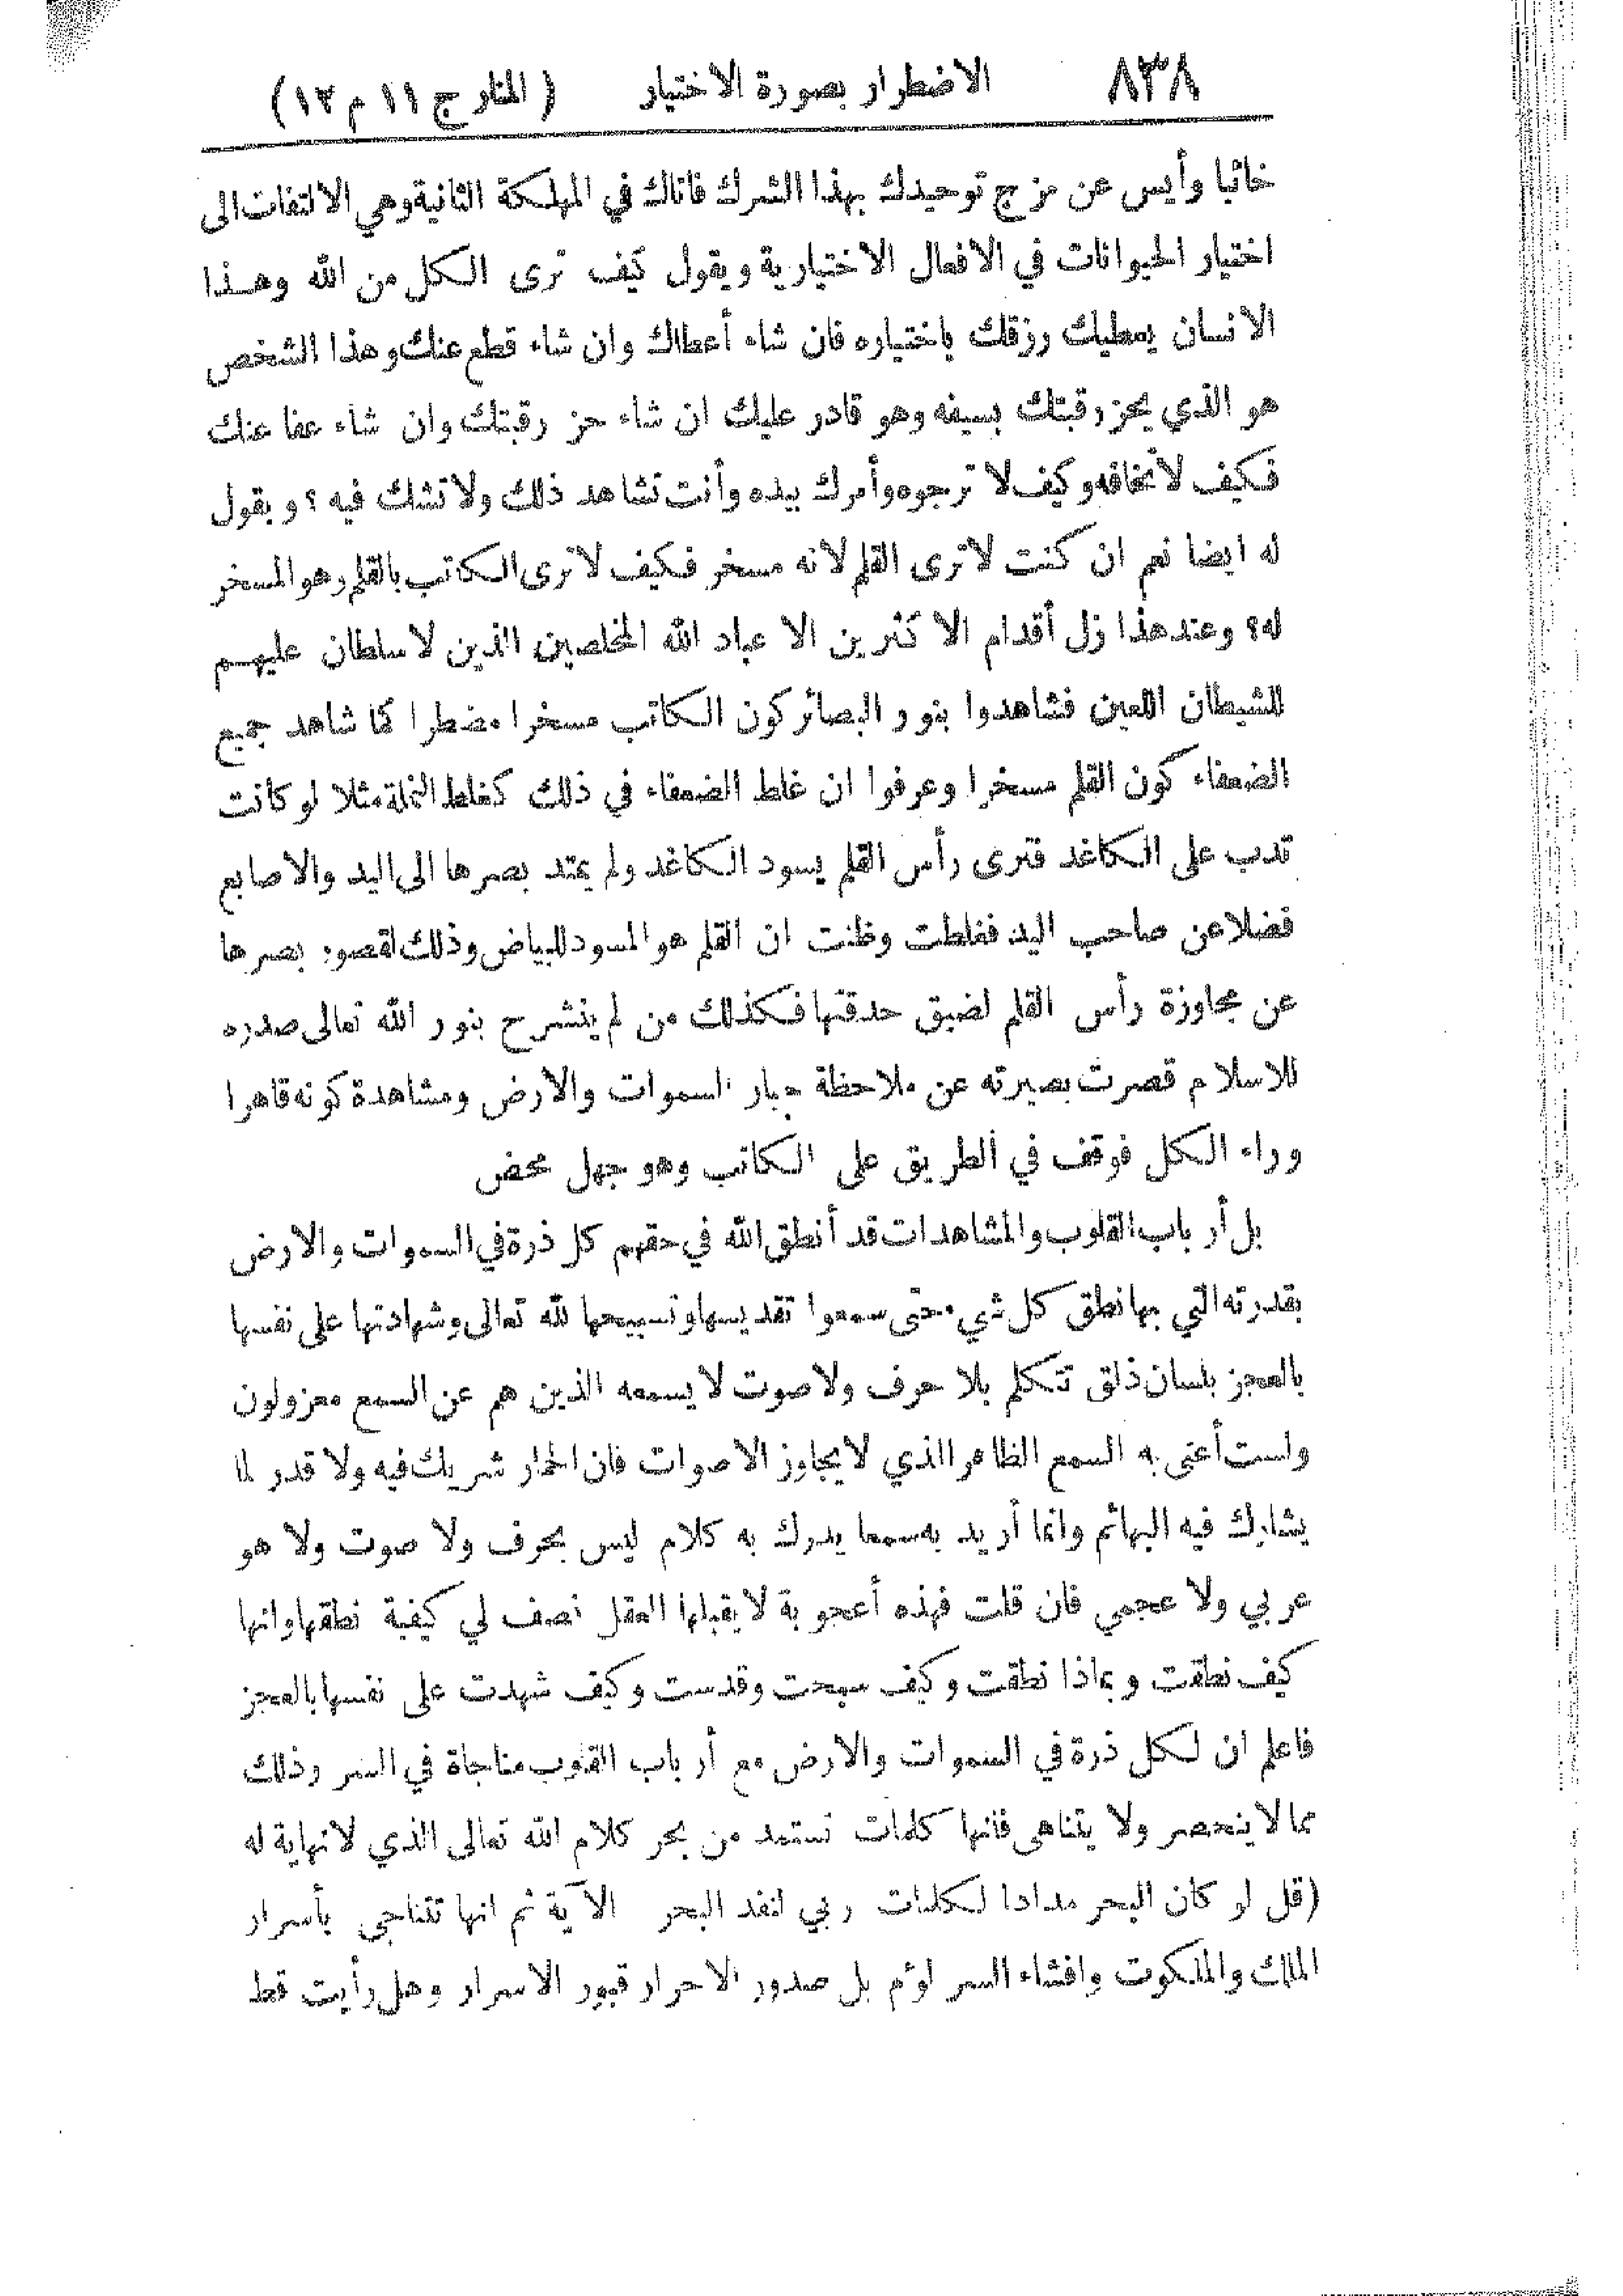 ٨٣٨ الاضطرار بصورة الاختيار ( المنار ج ١١ م ١٢)
خائبا وأيس عن مزج توحيدك بهذا الشرك فاتاك في المهلكة الثانية وهي الالتفات الى
اختيار الحيوانات في الافعال الاختيارية ويقول كيف ترى الكل من الله وهذا
الانسان يعطيك رزقك باختياره فان شاء أعطاك وان شاء قطع عنك وهذا الشخص
هو الذي يحز رقبتك بسيفه وهو قادر عليك ان شاء حز رقبتك وان شاء عفا عنك
فكيف لا تخافه وكيف لا ترجوه وأمرك بيده وأنت تشاهد ذلك ولا تشك فيه ؟ ويقول
له ايضا نعم ان كنت لا ترى القلم لانه مسخر فكيف لا ترى الكاتب بالقلم وهو المسخر
له؟ وعند هذا زل أقدام الاكثرين الا عباد الله المخلصين الذين لا سلطان عليهم
للشيطان اللعين فشاهدوا بنور البصائر كون الكاتب مسخرا مضطرا كما شاهد جميع
الضعفاء كون القلم مسخرا وعرفوا ان غلط الضعفاء في ذلك كغلط النملة مثلا لو كانت
تدب على الكاغد فترى رأس القلم يسود الكاغد ولم يمتد بصرها الى اليد والاصابع
فضلا عن صاحب اليد فغلطت وظنت ان القلم هو المسود للبياض وذلك لقصور بصرها
عن مجاوزة رأس القلم لضيق حدقتها فكذلك من لم ينشرح بنور الله تعالى صدره
للاسلام قصرت بصيرته عن ملاحظة جبار السموات والارض ومشاهدة كونه قاهرا
وراء الكل فوقف في الطريق على الكاتب وهو جهل محض
بل أرباب القلوب والمشاهدات قد أنطق الله في حقهم كل ذرة في السموات والارض
بقدرته التي بها نطق كل شيء حتى سمعوا تقديسها وتسبيحها لله تعالى وشهادتها على نفسها
بالعجز بلسان ذلق تتكلم بلا حرف ولا صوت لا يسمعه الذين هم عن السمع معزولون
ولست أعني به السمع الظاهر الذي لا يجاوز الاصوات فان الحمار شريك فيه ولا قدر لما
يشارك فيه البهائم وانما أريد به سمعا يدرك به كلام ليس بحرف ولا صوت ولا هو
عربي ولا عجمي فان قلت فهذه أعجوبة لا يقبلها العقل فصف لي كيفية نطقها وانها
كيف نطقت وبماذا نطقت وكيف سبحت وقدست وكيف شهدت على نفسها بالعجز
فاعلم ان لكل ذرة في السموات والارض مع أرباب القلوب مناجاة في السر وذلك
مما لا ينحصر ولا يتناهى فانها كلمات تستمد من بحر كلام الله تعالى الذي لا نهاية له
(قل لو كان البحر مدادا لكلمات ربي لنفد البحر الآية ثم انها تتناجى بأسرار
الملك والملكوت وافشاء السر لؤم بل صدور الاحرار قبور الاسرار وهل رأيت قط